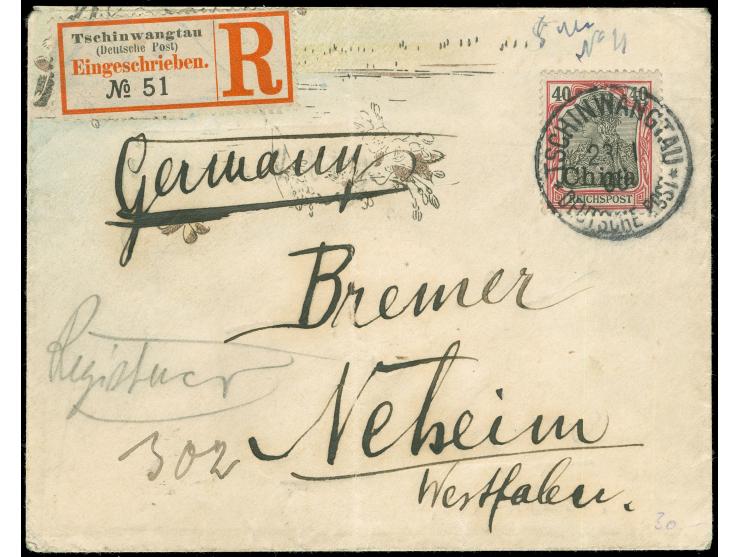 Tschinwangtau
(Deutsche Post)
Eingeschrieben.
№ 51
R
No 11
40 40
China
REICHSPOST
TSCHINWANGTAU
DEUTSCHE POST
Germany
Bremer
Neheim
Westfalen.
302
30-